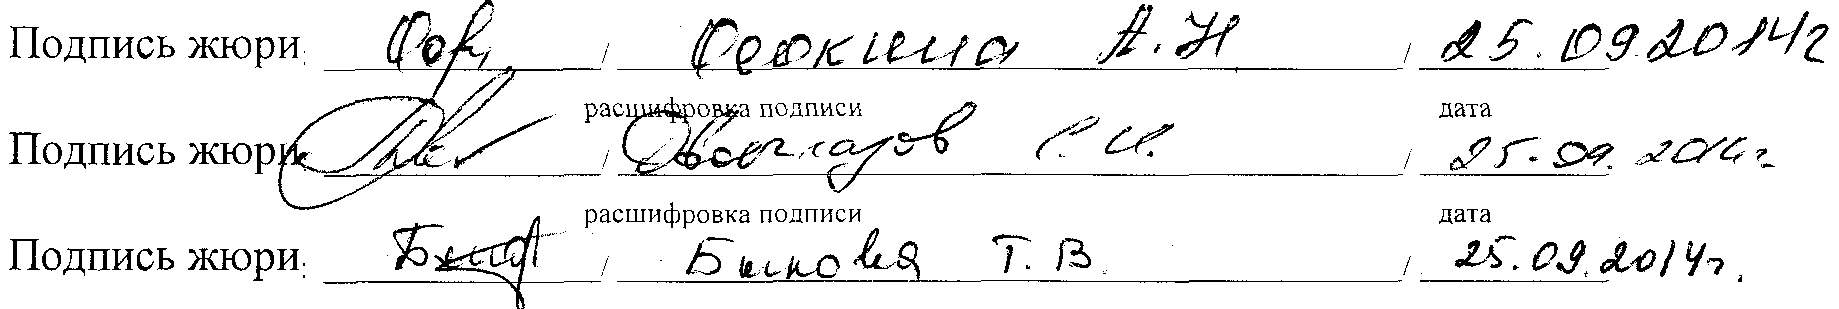 Подпись жюри: / А.Н / 25.09.2014г
расшифровка подписи дата
Подпись жюри: / С.И. / 25.09.2014г.
расшифровка подписи дата
Подпись жюри: / Быкова Т.В. / 25.09.2014г.